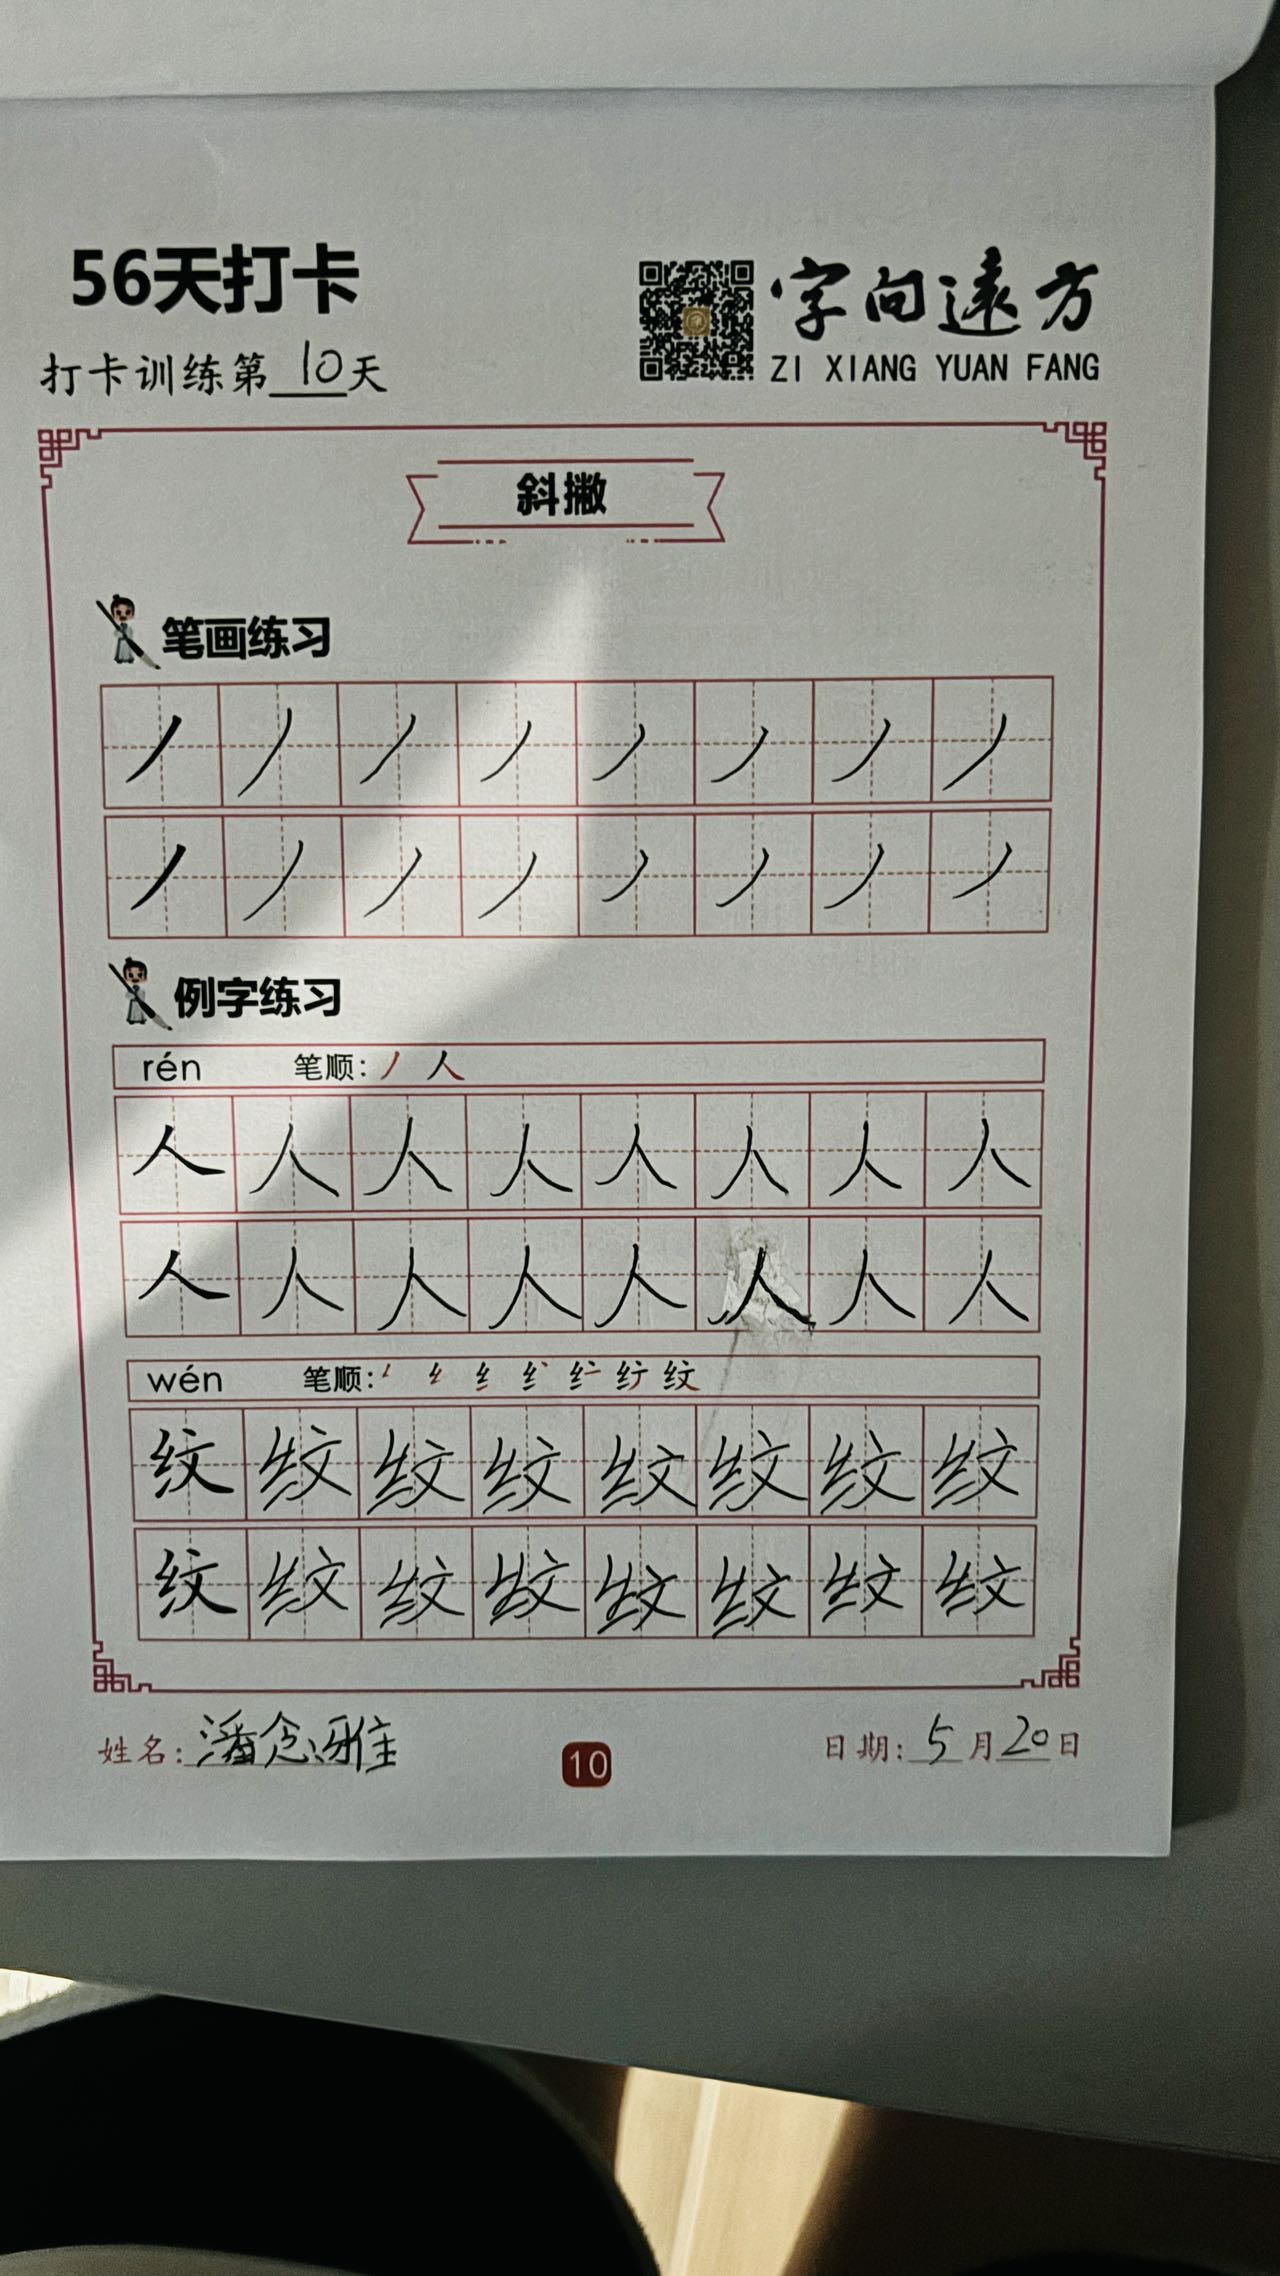 56天打卡
字向遠方
打卡训练第10天
ZI XIANG YUAN FANG
斜撇
笔画练习
丿丿丿丿丿丿丿丿
丿丿丿丿丿丿丿丿
例字练习
rén 笔顺: 丿 人
人人人人人人人人
人人人人人人人人
wén 笔顺: 纹
纹纹纹纹纹纹纹纹
纹纹纹纹纹纹纹纹
姓名: 潘念雅
10
日期: 5月20日